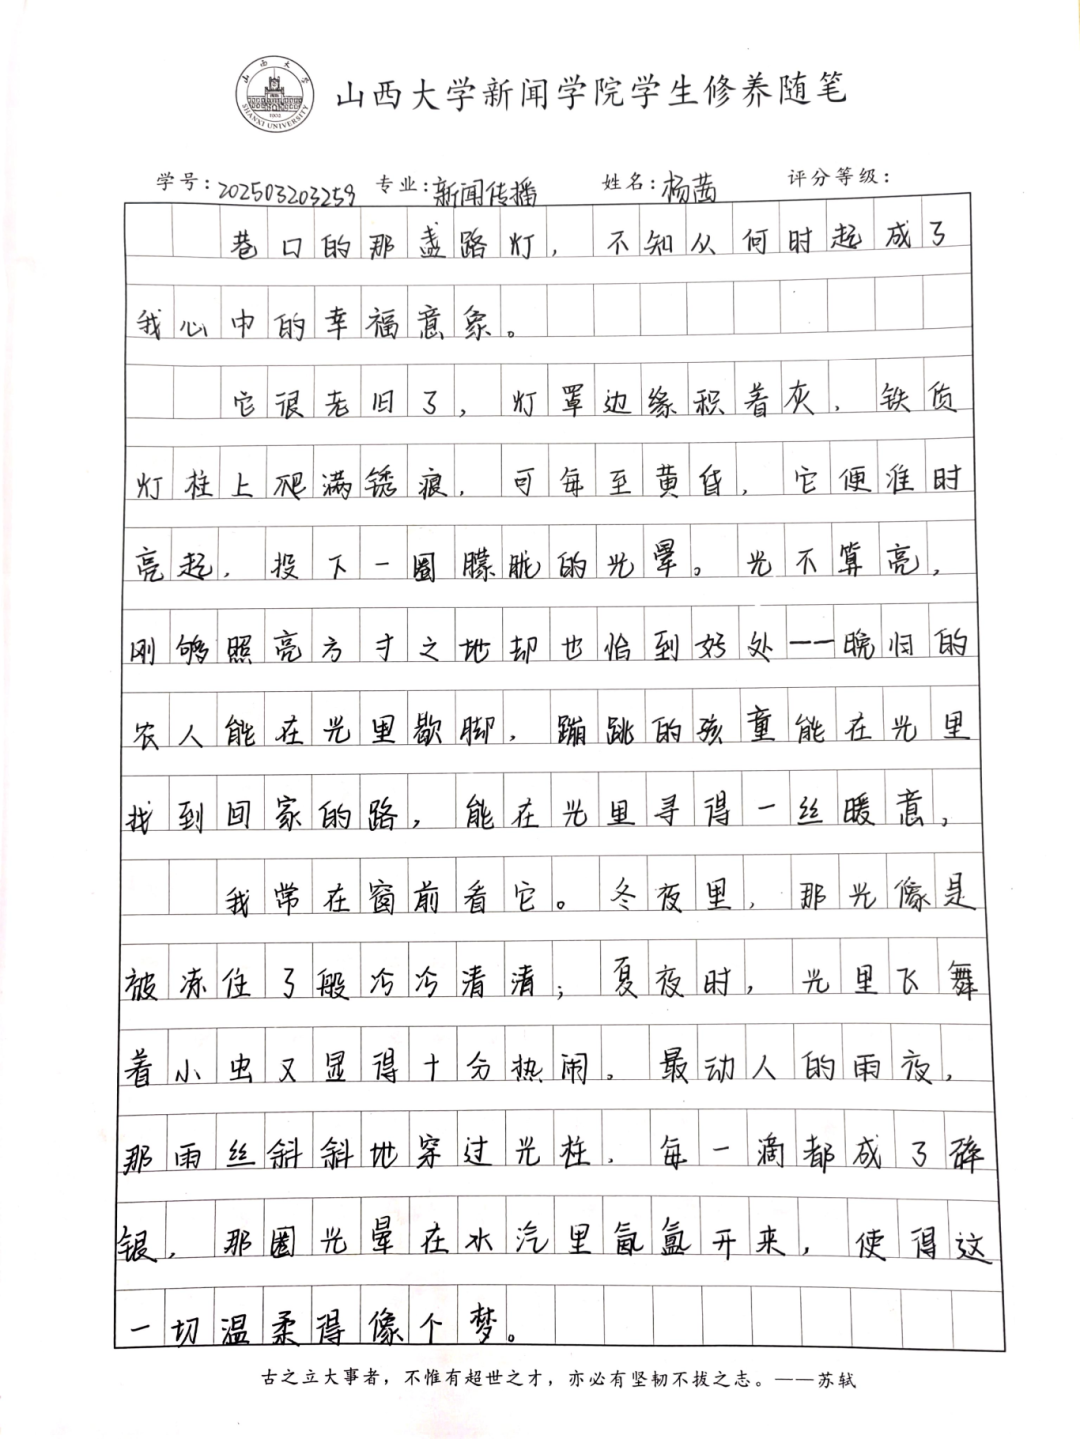 山西大学
SHANXI UNIVERSITY
1902
山西大学新闻学院学生修养随笔
学号:202503203259 专业:新闻传播 姓名:杨茜 评分等级:
巷口的那盏路灯,不知从何时起成了
我心中的幸福意象。
它很老旧了,灯罩边缘积着灰,铁质
灯柱上爬满锈痕,可每至黄昏,它便准时
亮起,投下一圈朦胧的光晕。光不算亮,
刚够照亮方寸之地却也恰到好处——晚归的
农人能在光里歇脚,蹦跳的孩童能在光里
找到回家的路,能在光里寻得一丝暖意,
我常在窗前看它。冬夜里,那光像是
被冻住了般冷冷清清;夏夜时,光里飞舞
着小虫又显得十分热闹。最动人的雨夜,
那雨丝斜斜地穿过光柱,每一滴都成了碎
银,那圈光晕在水汽里氤氲开来,使得这
一切温柔得像个梦。
古之立大事者,不惟有超世之才,亦必有坚韧不拔之志。——苏轼